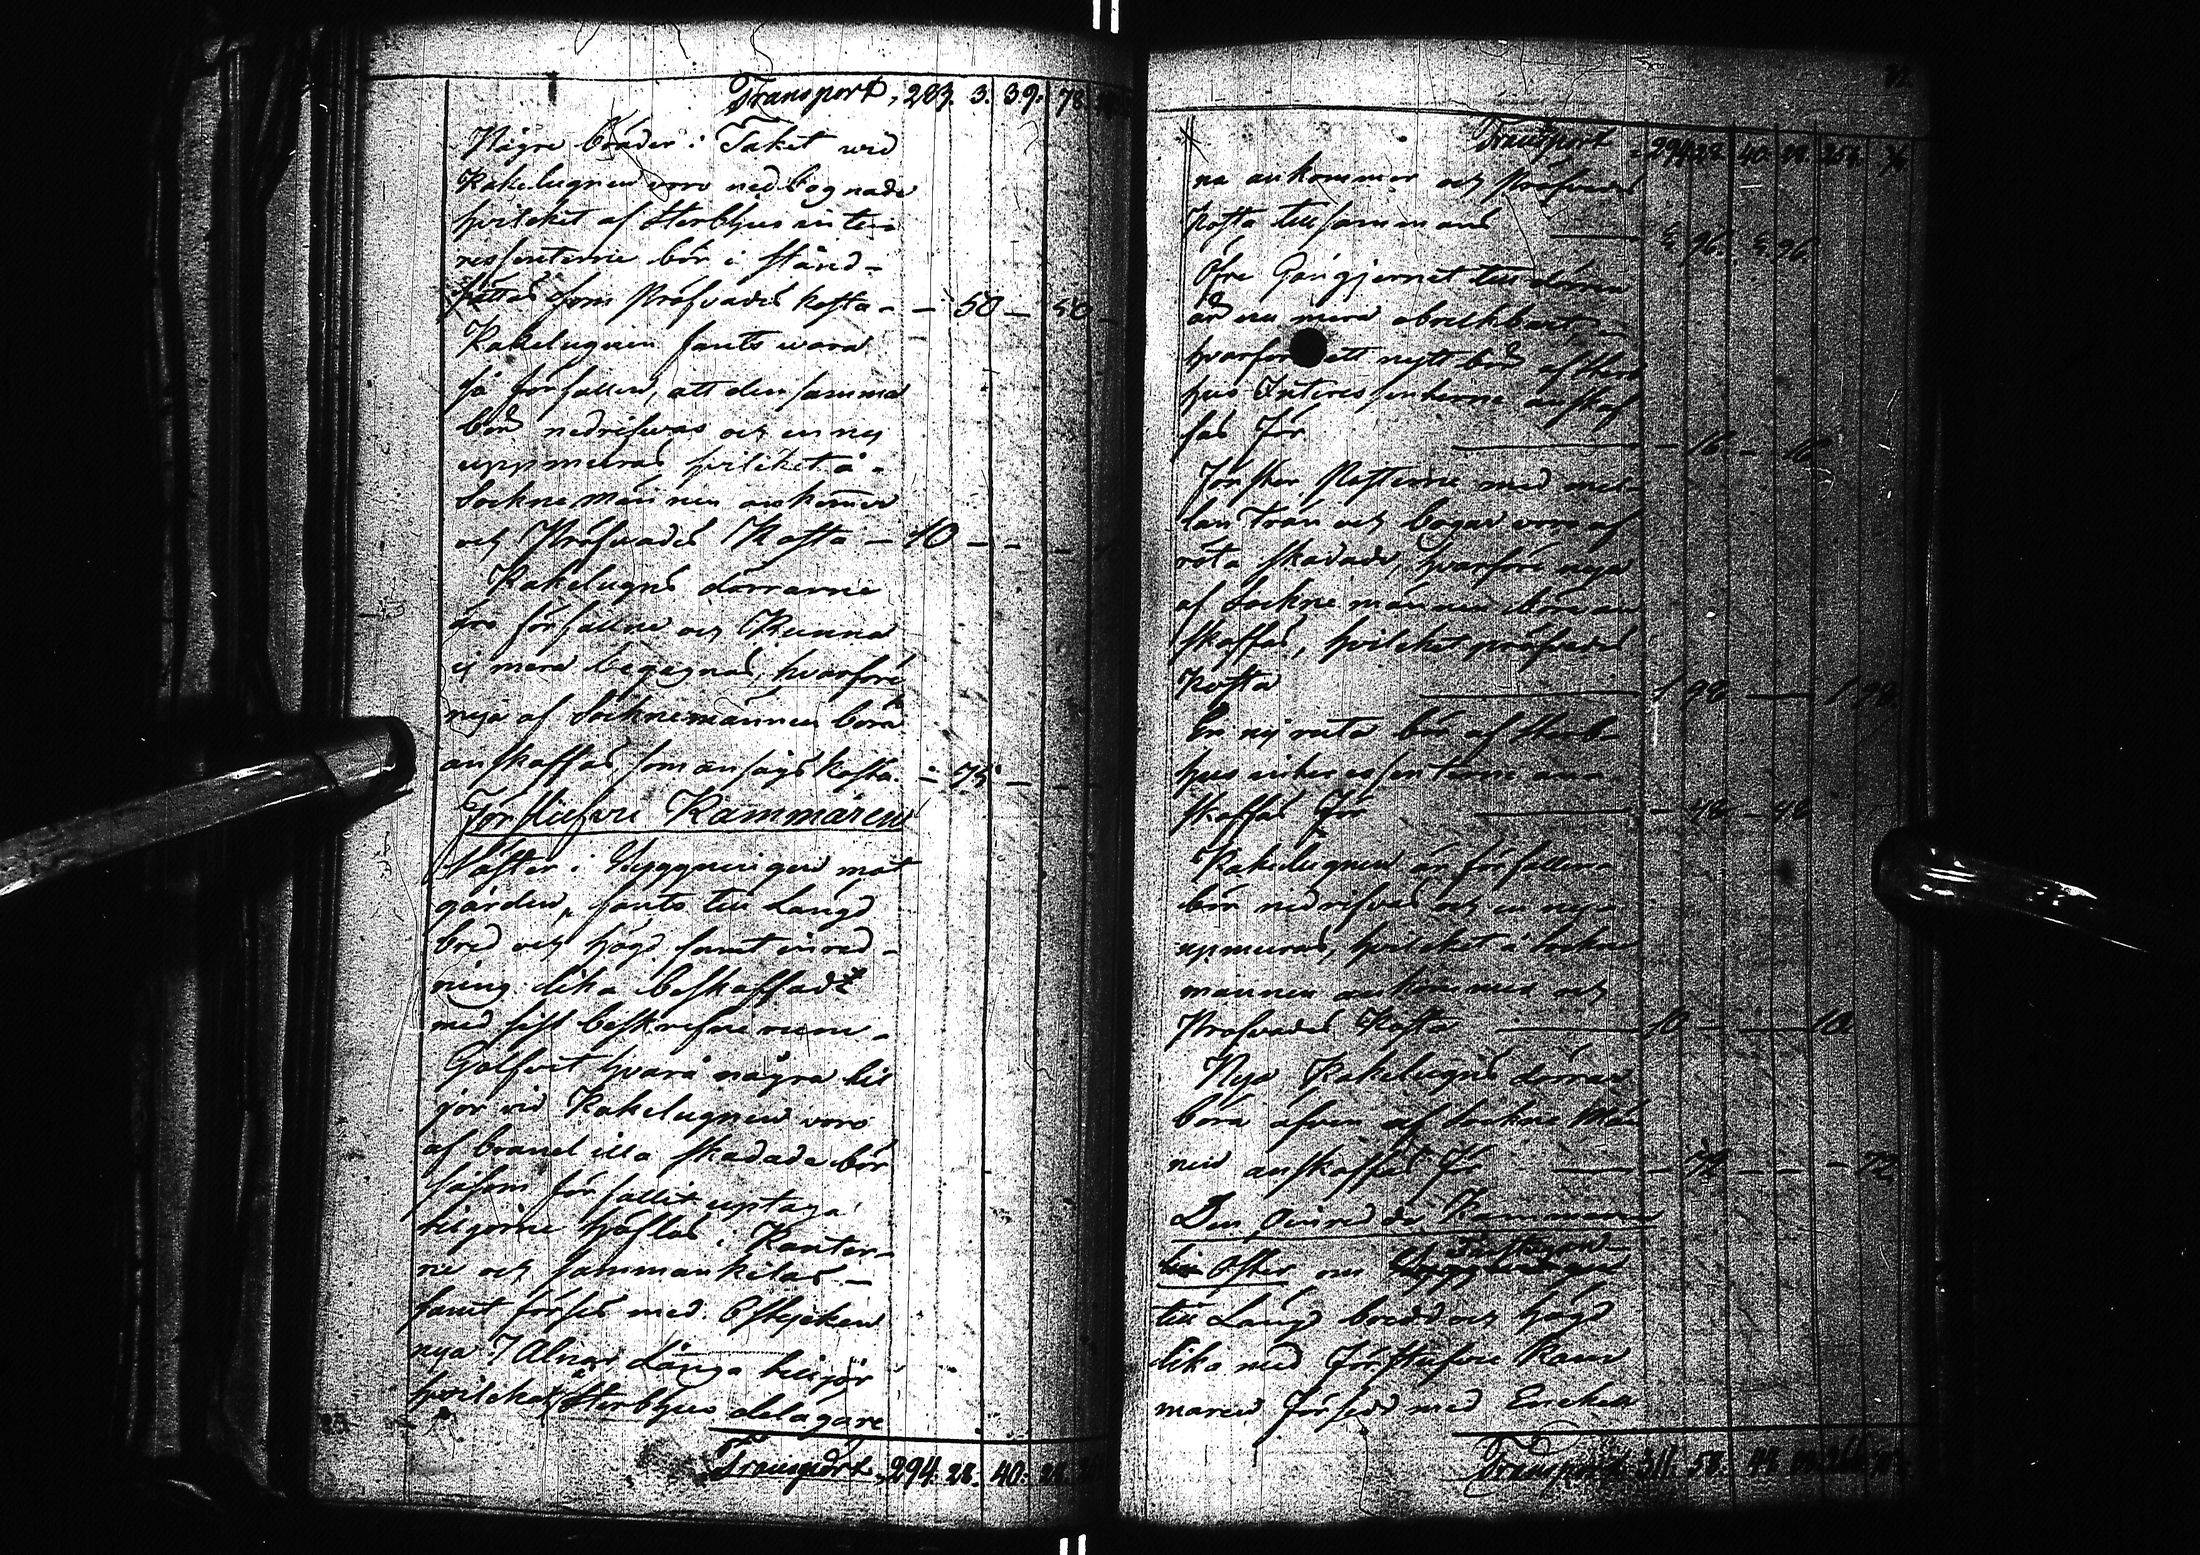 Transport, 283. 3. 39. 78.
Några bräder i Taket wid
Kakelugnen voro nedbognade
hvilcket af Sterbhus inte-
ressenterne bör i stånd-
sättas som Pröfvades kosta - - 50 - 50 -
Kakelugnen fants wara
så förfallen, att den samma
bör nedrifwas och en ny
uppmuras hvilcket å-
Sockne männen ankommer
och Pröfvades Kosta - 10 - - -
Kakelugns dörrarne
äro förfallne och Kunna
ej mera begagnas, hvarföre
nya af Socknemännen böra
anskaffas som ansågs kosta. - 75 - -
Förstufvu Kammaren
Väster i Byggningen mot
gården, fants till Längd
bred och högd samt inred-
ning lika beskaffadt
med sist beskrefne rum.
Golfvet hvara några til
jor vid Kakelugnen voro
af brand illa skadade bör
såsom förfallit uptaga
tiljorne hyflas i Kanter-
ne och samman kilas -
samt förses med 6 stycken
nya 7 Alnar Långa tiljor
hvilcket Sterbhus delagare
Transport, 294. 28. 40. 28.
Transport 294. 28. 40. 28. 254.
ne ankommer och Pröfvades
Kosta tillsammans - 96. 96
Öfre Gångjernet till dörren
är nu mera obruckbart,
hvarför ett nytt bör af Sterb
hus Interessenterne anskaf
fas För - 16. - 16
Fönster Posterne med mel-
lan Trän och bogar voro af
röta skadade, hvarföre nya
af Sockne männen böra an
skaffas, hvilcket pröfvades
Kosta
En ny ruta bör af Sterb-
hus interessenterne ann-
skaffas För - 48 - 48
Kakelugnen är förfallen
bör nedrifvas och en ny
upmuras, hvilcket å Sockne
männen ankommer och
Pröfvades Kosta - 10 - - 10
Nya Kakelugns dörrar
böra äfven af Sockne Män
nen anskaffas För
Den Oinredda Kammaren
till Öster om
till Längd bredd och högd
lika med Förstufvu Kam
maren försedd med Enckelt
Transport 311. 58.